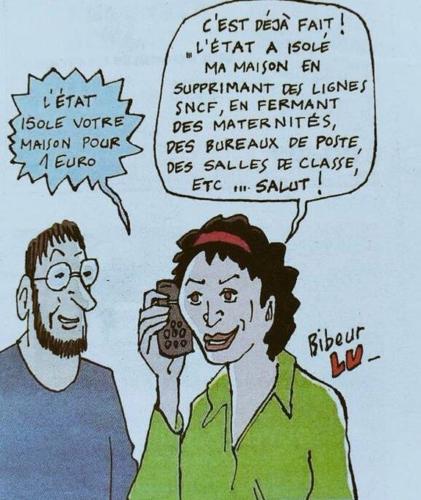 L'ÉTAT
ISOLE VOTRE
MAISON POUR
1 EURO
C'EST DÉJÀ FAIT !
... L'ÉTAT A ISOLÉ
MA MAISON EN
SUPPRIMANT DES LIGNES
SNCF, EN FERMANT
DES MATERNITÉS,
DES BUREAUX DE POSTE,
DES SALLES DE CLASSE,
ETC .... SALUT !
Bibeur
LU_